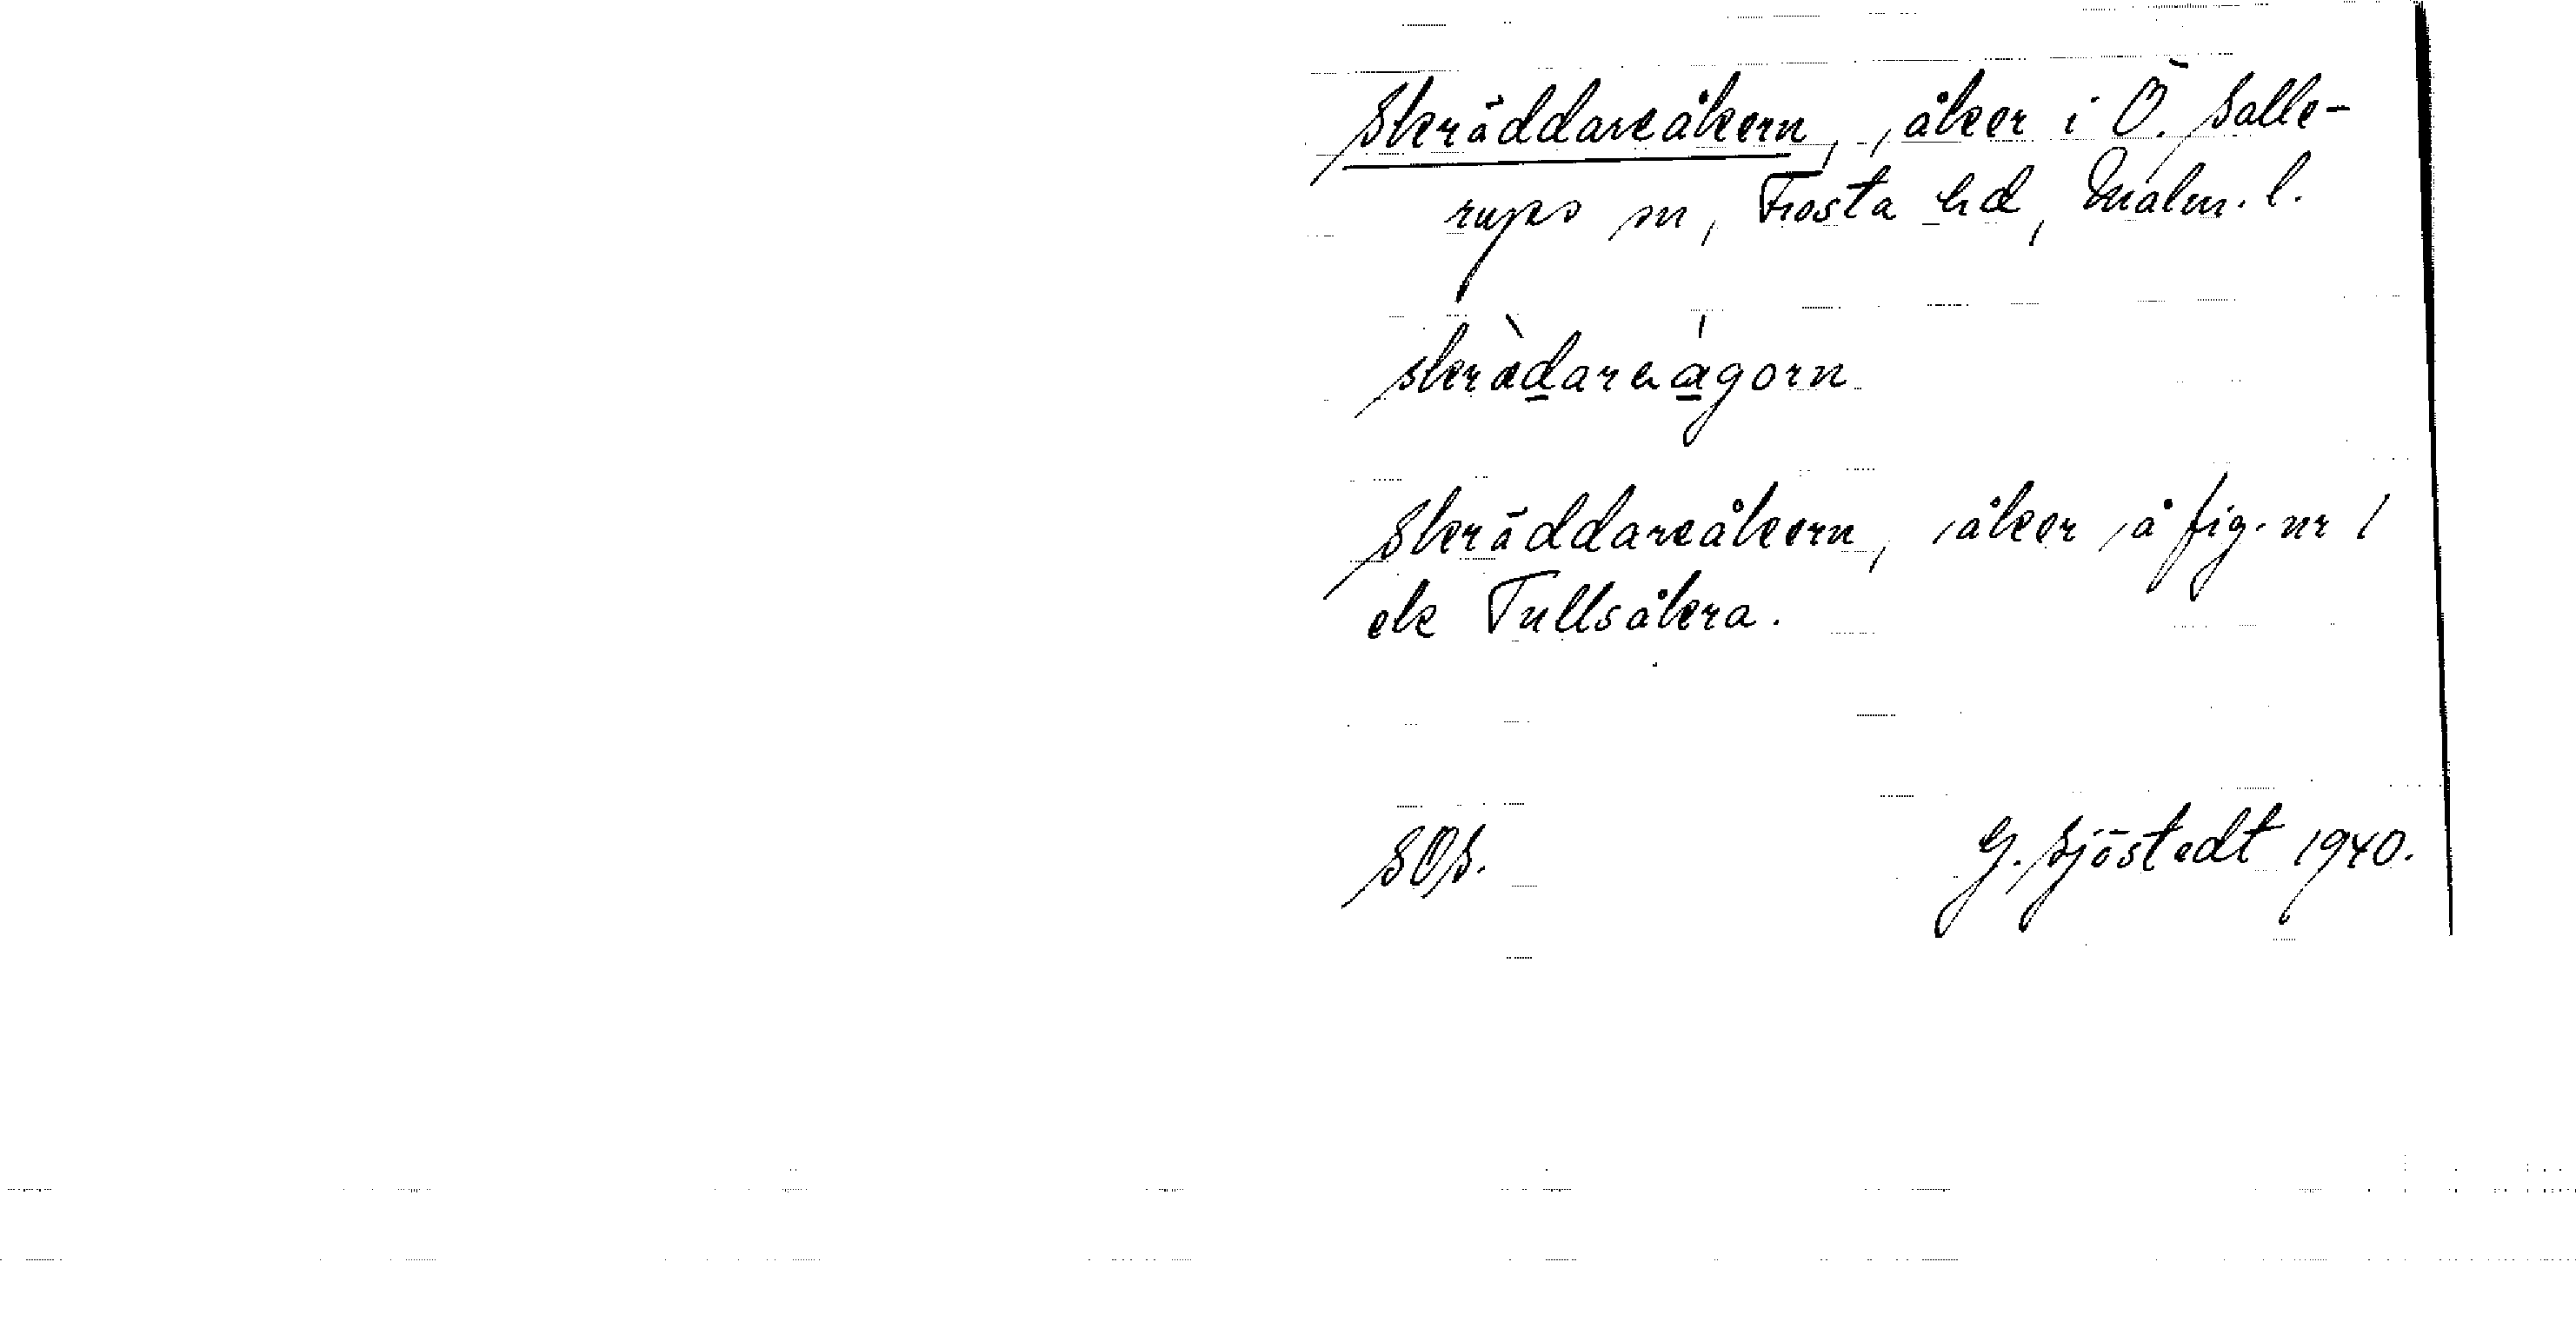 Skräddareåkern, åker i Ö. Salle-
rups sn, Frosta hd, Malm. l.
skrædarɘagorn
Skräddareåkern, åker å fig. nr 1
ek Tullsåkra.
SOS. G. Sjöstedt 1940.